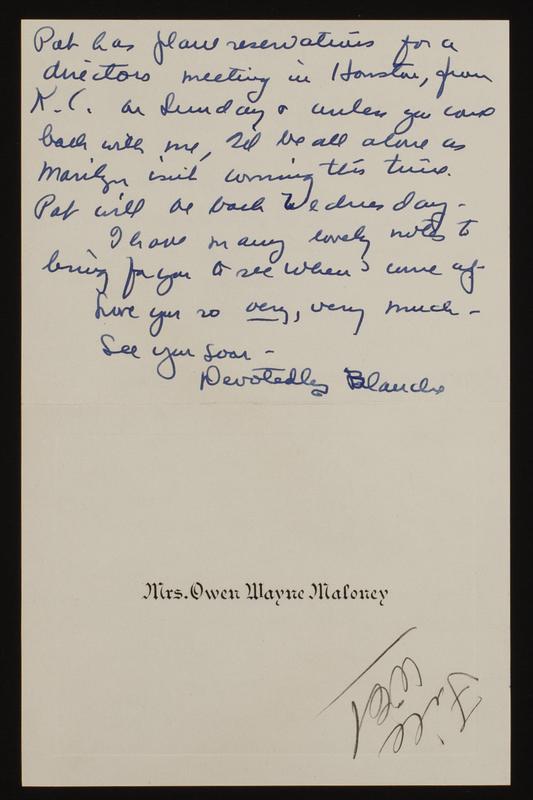 Pat has plane reservations for a
directors meeting in Houston, from
K.C. on Sunday & unless you come
back with me, I'd be all alone as
Marilyn isn't coming this time.
Pat will be back Wednesday -
I have many lovely notes to
bring for you to see when I come up -
Love you so very, very much -
See you soon -
Devotedly Blanche
Mrs. Owen Wayne Maloney
File